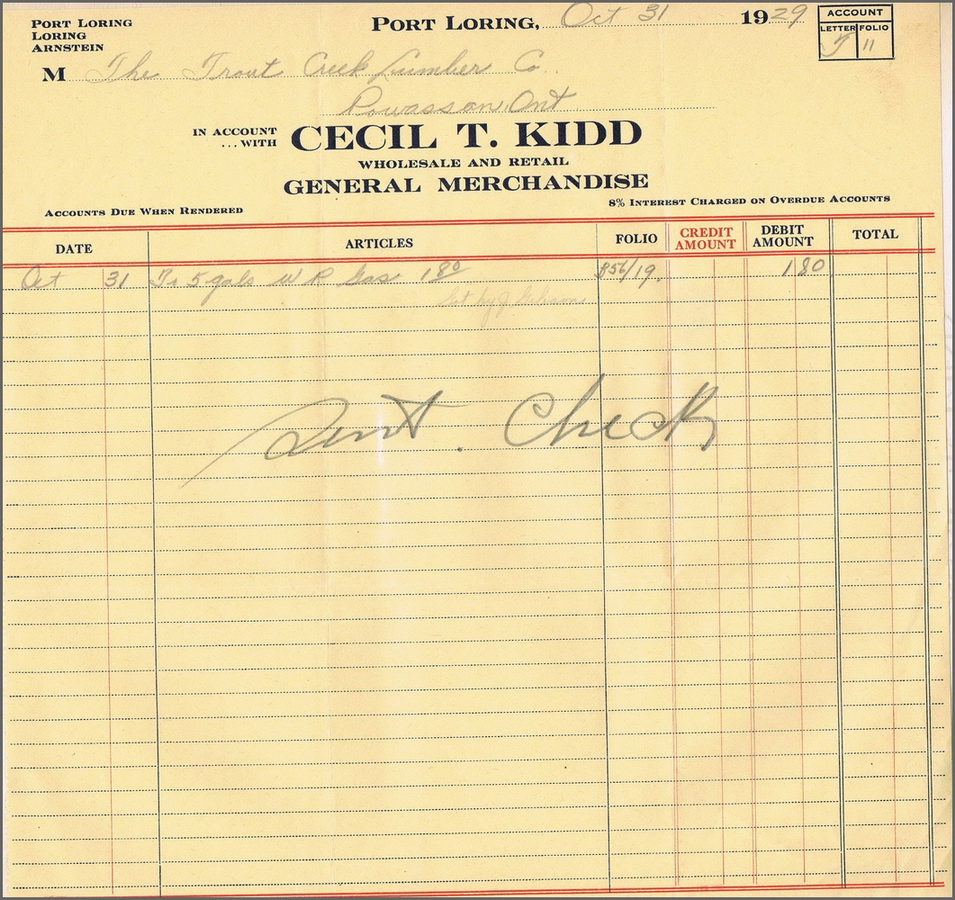 PORT LORING
LORING
ARNSTEIN
PORT LORING, Oct 31 1929
ACCOUNT
LETTER FOLIO
T 11
M The Trout Creek Lumber Co.
Powassan, Ont
IN ACCOUNT
...WITH
CECIL T. KIDD
WHOLESALE AND RETAIL
GENERAL MERCHANDISE
ACCOUNTS DUE WHEN RENDERED
8% INTEREST CHARGED ON OVERDUE ACCOUNTS
DATE ARTICLES FOLIO CREDIT AMOUNT DEBIT AMOUNT TOTAL
Oct 31 To 5 gals W R Gas 1 80 B56/19. 1 80
by J
Sent. Check